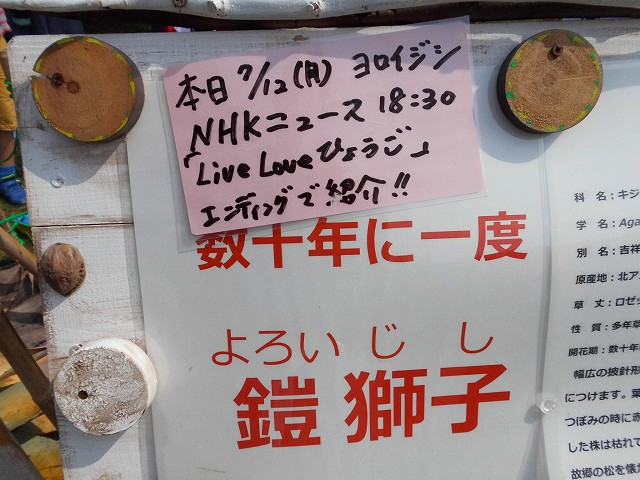 本日 7/12(月) ヨロイジシ
NHKニュース 18:30
「Live Loveひょうご」
エンディングで紹介!!
数十年に一度
よろい じ し
鎧 獅子
科 名：キジ
学 名：Aga
別 名：吉祥
原産地：北ア
草 丈：ロゼッ
性 質：多年草
開花期：数十年に
幅広の披針形
につけます。葉
つぼみの時に赤
した株は枯れて
故郷の松を懐か